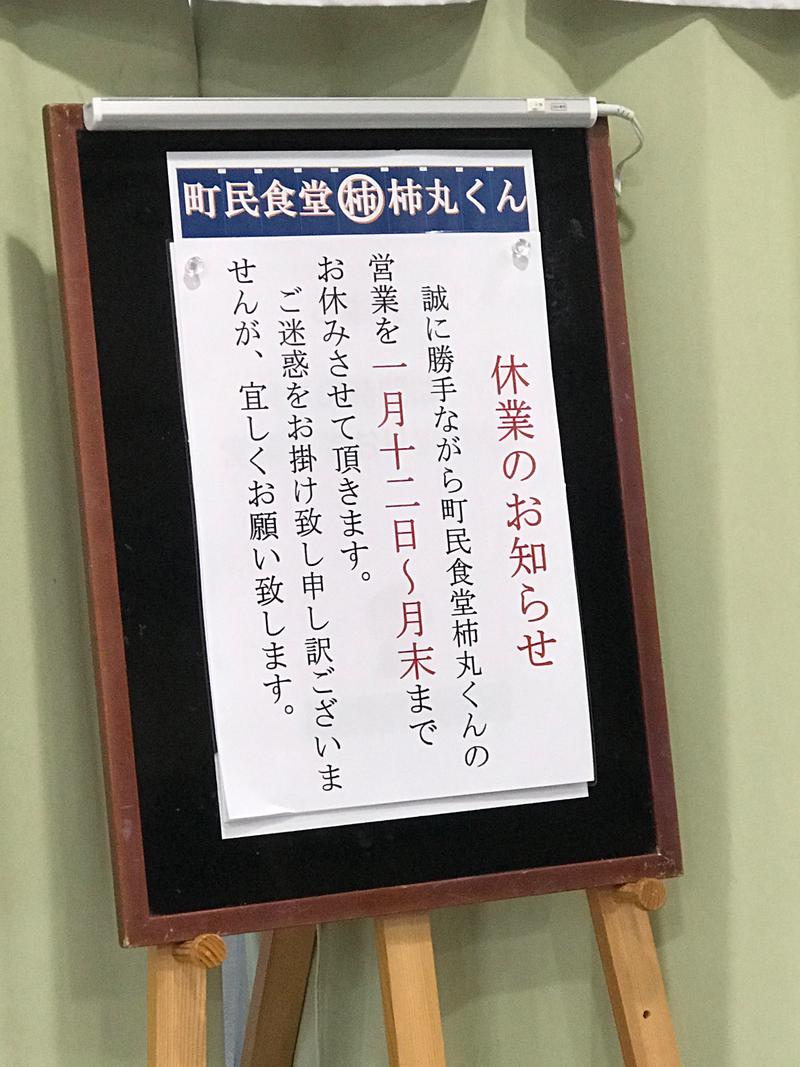 町民食堂 柿 柿丸くん
休業のお知らせ
誠に勝手ながら町民食堂柿丸くんの
営業を一月十二日～月末まで
お休みさせて頂きます。
ご迷惑をお掛け致し申し訳ございま
せんが、宜しくお願い致します。